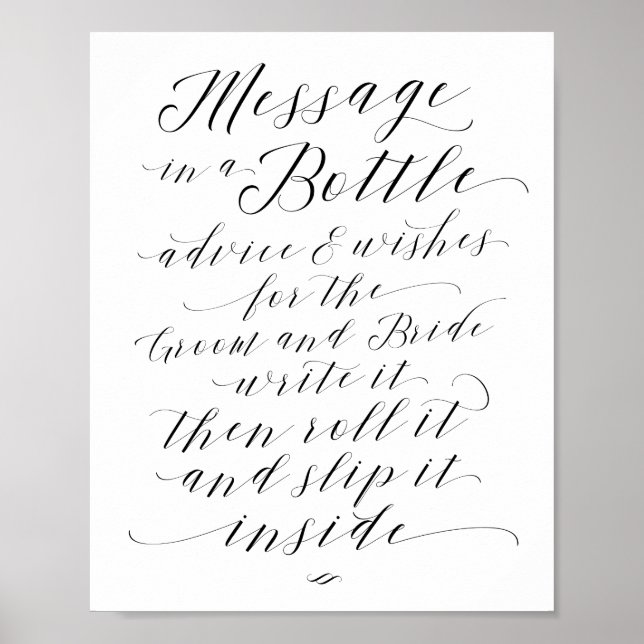 Message
in a Bottle
advice & wishes
for the
Groom and Bride
write it
then roll it
and slip it
inside